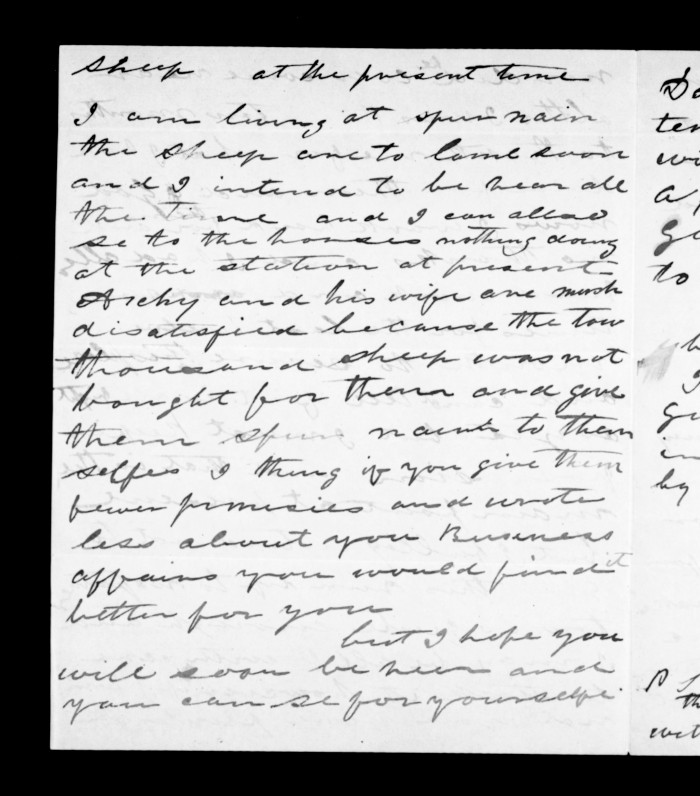 sheep at the present time
I am living at spur nain
the sheep are to lamb soon
and I intend to be hear all
the time and I can allso
se to the horses nothing doing
at the station at present
Archy and his wife are mush
disatisfied because the tow
thousand sheep was not
bought for them and give
them spur naint to them
selfes I thing if you give them
fewer promisies and wrote
less about you Business
affairs you would find it
better for you
but I hope you
will soon be hear and
you can se for yourselfe